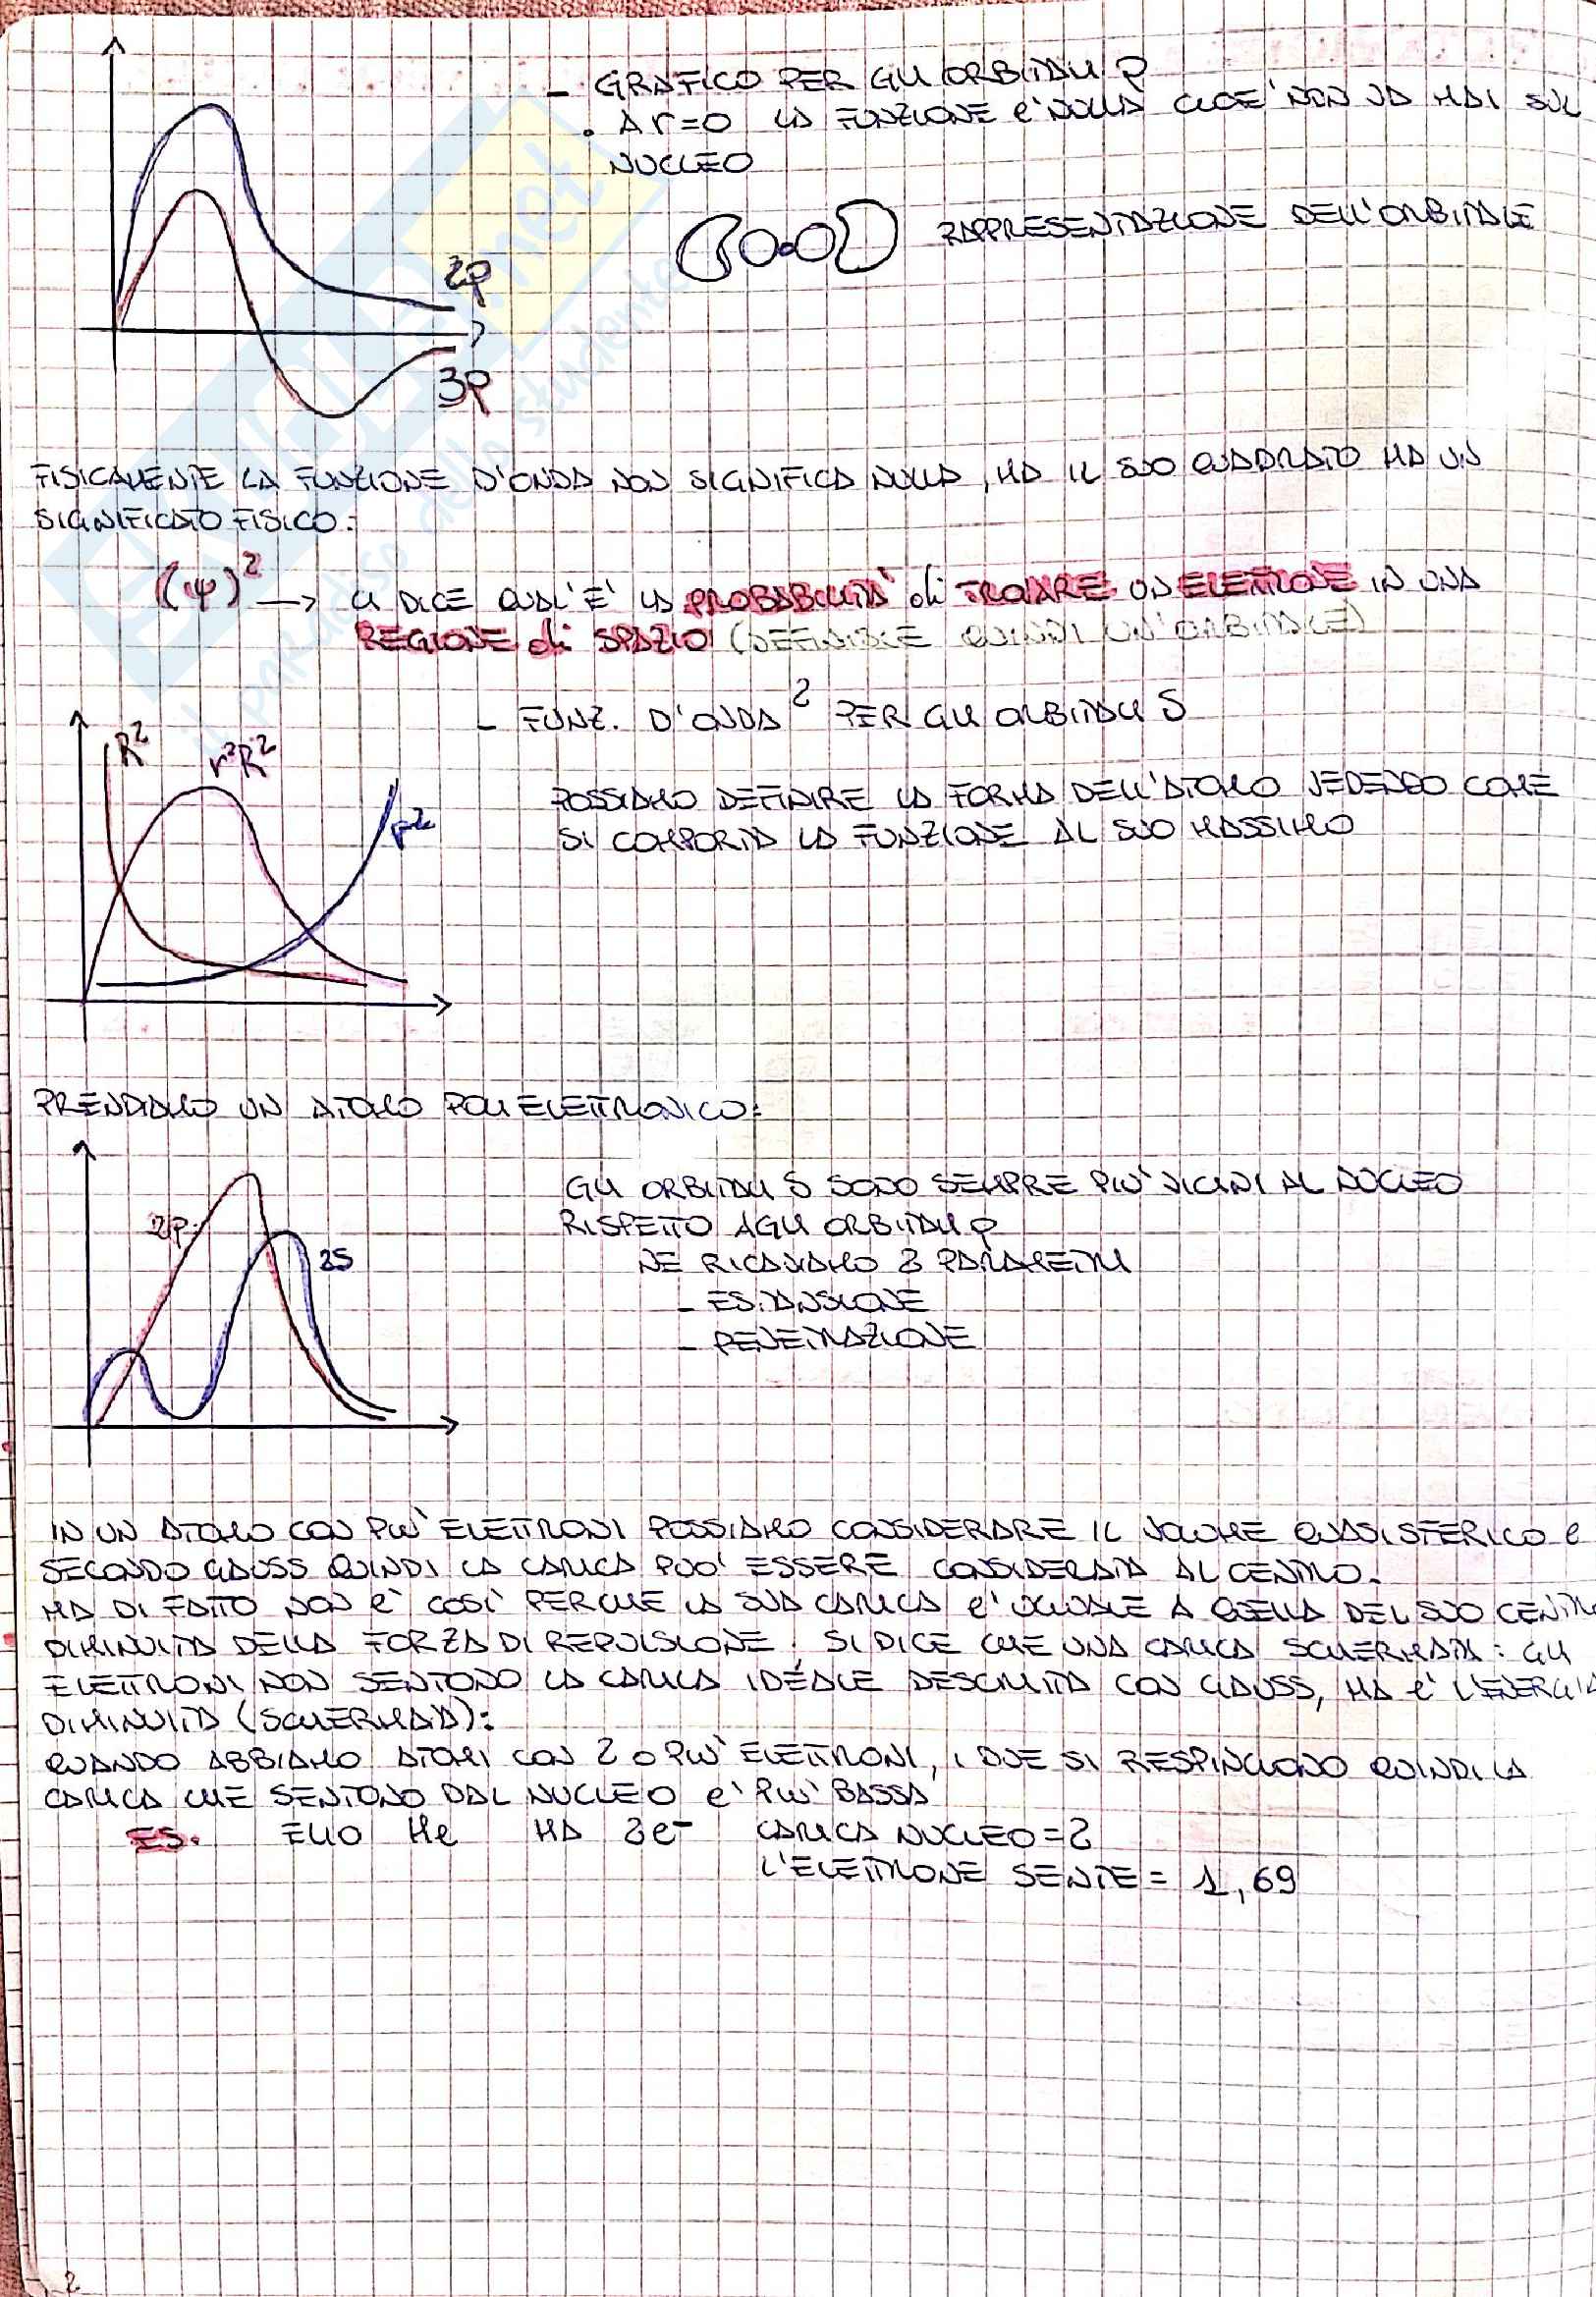 - GRAFICO PER GLI ORBITALI P
. A r=0 LA FUNZIONE e' NULLA CIOE' NON VA MAI SUL
NUCLEO
RAPPRESENTAZIONE DELL'ORBITALE
2p
3p
FISICAMENTE LA FUNZIONE D'ONDA NON SIGNIFICA NULLA, MA IL SUO QUADRATO HA UN
SIGNIFICATO FISICO:
(ψ)² → CI DICE QUAL'E' LA PROBABILITA' di TROVARE UN ELETTRONE IN UNA
REGIONE di SPAZIO (DEFINISCE QUINDI UN'ORBITALE)
- FUNZ. D'ONDA ² PER GLI ORBITALI S
R²
r²R²
r²
POSSIAMO DEFINIRE LA FORMA DELL'ATOMO VEDENDO COME
SI COMPORTA LA FUNZIONE AL SUO MASSIMO
PRENDIAMO UN ATOMO POLIELETTRONICO:
2p
2S
GLI ORBITALI S SONO SEMPRE PIU' VICINI AL NUCLEO
RISPETTO AGLI ORBITALI p
NE RICAVIAMO 2 PARAMETRI
- ESPANSIONE
- PENETRAZIONE
IN UN ATOMO CON PIU' ELETTRONI POSSIAMO CONSIDERARE IL VOLUME QUASI SFERICO e
SECONDO GAUSS QUINDI LA CARICA PUO' ESSERE CONSIDERATA AL CENTRO.
MA DI FATTO NON e' COSI' PERCHE LA SUA CARICA e' UGUALE A QUELLA DEL SUO CENTRO
DIMINUITA DELLA FORZA DI REPULSIONE. SI DICE CHE UNA CARICA SCHERMATA: GLI
ELETTRONI NON SENTONO LA CARICA IDEALE DESCRITTA CON GAUSS, MA e' L'ENERGIA
DIMINUITA (SCHERMATA):
QUANDO ABBIAMO ATOMI CON 2 O PIU' ELETTRONI, I DUE SI RESPINGONO QUINDI LA
CARICA CHE SENTONO DAL NUCLEO e' PIU' BASSA
ES. ELIO He HA 2e⁻ CARICA NUCLEO = 2
L'ELETTRONE SENTE = 1,69
2